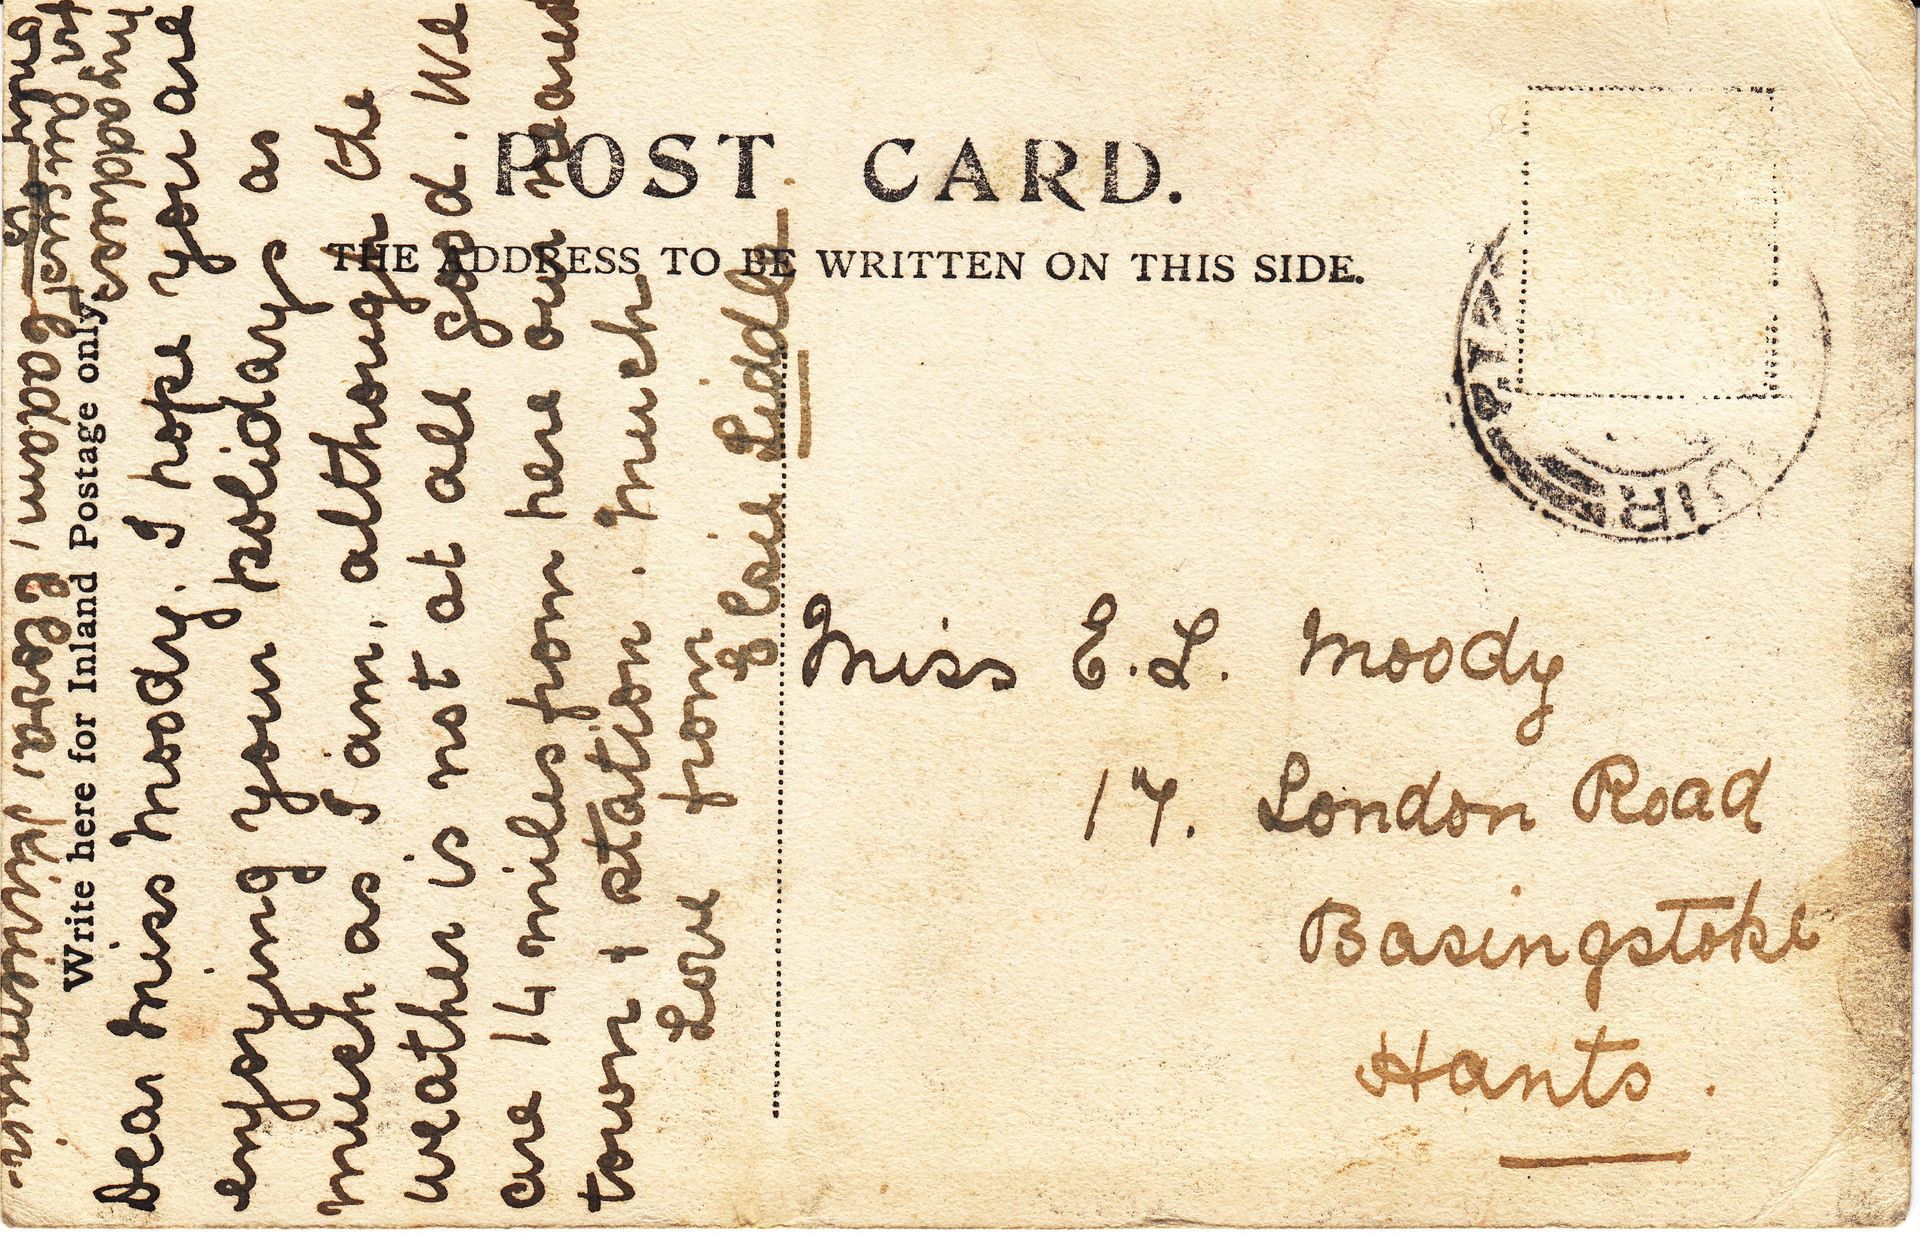 POST CARD.
THE ADDRESS TO BE WRITTEN ON THIS SIDE.
Write here for Inland Postage only.
Dear Miss Moody. I hope you are
enjoying your holidays as
much as I am, although the
weather is not at all good. We
are 14 miles from here our nearest
town & station. Much
Love from
Elsie Liddle
my address
Miss E. L. Moody
17. London Road
Basingstoke
Hants.